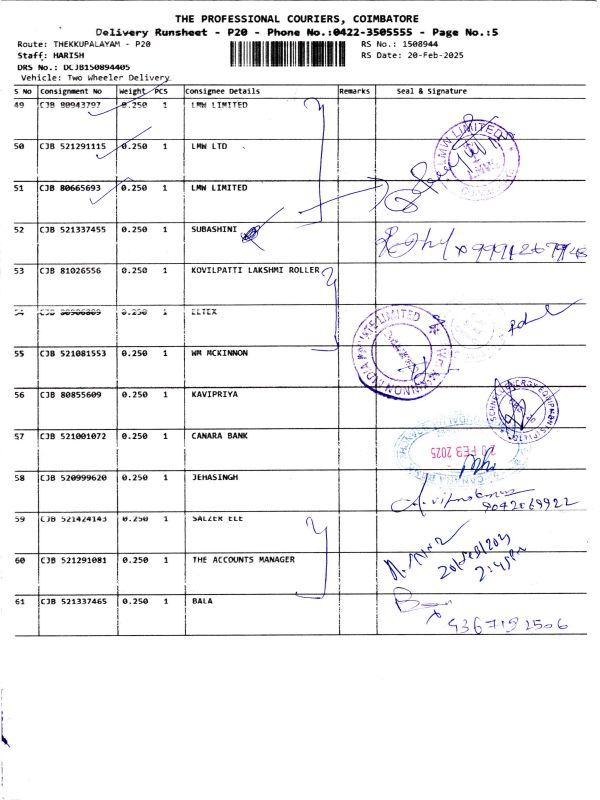 THE PROFESSIONAL COURIERS, COIMBATORE
Delivery Runsheet - P20 - Phone No.:0422-3505555 - Page No.:5
Route: THEKKUPALAYAM - P20 RS No.: 1508944
Staff: HARISH RS Date: 20-Feb-2025
DRS No.: DCJB150894405
Vehicle: Two Wheeler Delivery
S No Consignment No Weight PCS Consignee Details Remarks Seal & Signature
49 CJB 80943797 0.250 1 LMW LIMITED
50 CJB 521291115 0.250 1 LMW LTD
LMW LIMITED
51 CJB 80665693 0.250 1 LMW LIMITED
52 CJB 521337455 0.250 1 SUBASHINI
53 CJB 81026556 0.250 1 KOVILPATTI LAKSHMI ROLLER
54 CJB 0.250 1 ELTEX
55 CJB 521081553 0.250 1 WM MCKINNON
56 CJB 80855609 0.250 1 KAVIPRIYA
57 CJB 521001072 0.250 1 CANARA BANK
20 FEB 2025
58 CJB 520999620 0.250 1 JEHASINGH
9042069922
59 CJB 521424143 0.250 1 SALZER ELE
60 CJB 521291081 0.250 1 THE ACCOUNTS MANAGER
61 CJB 521337465 0.250 1 BALA
9367192506